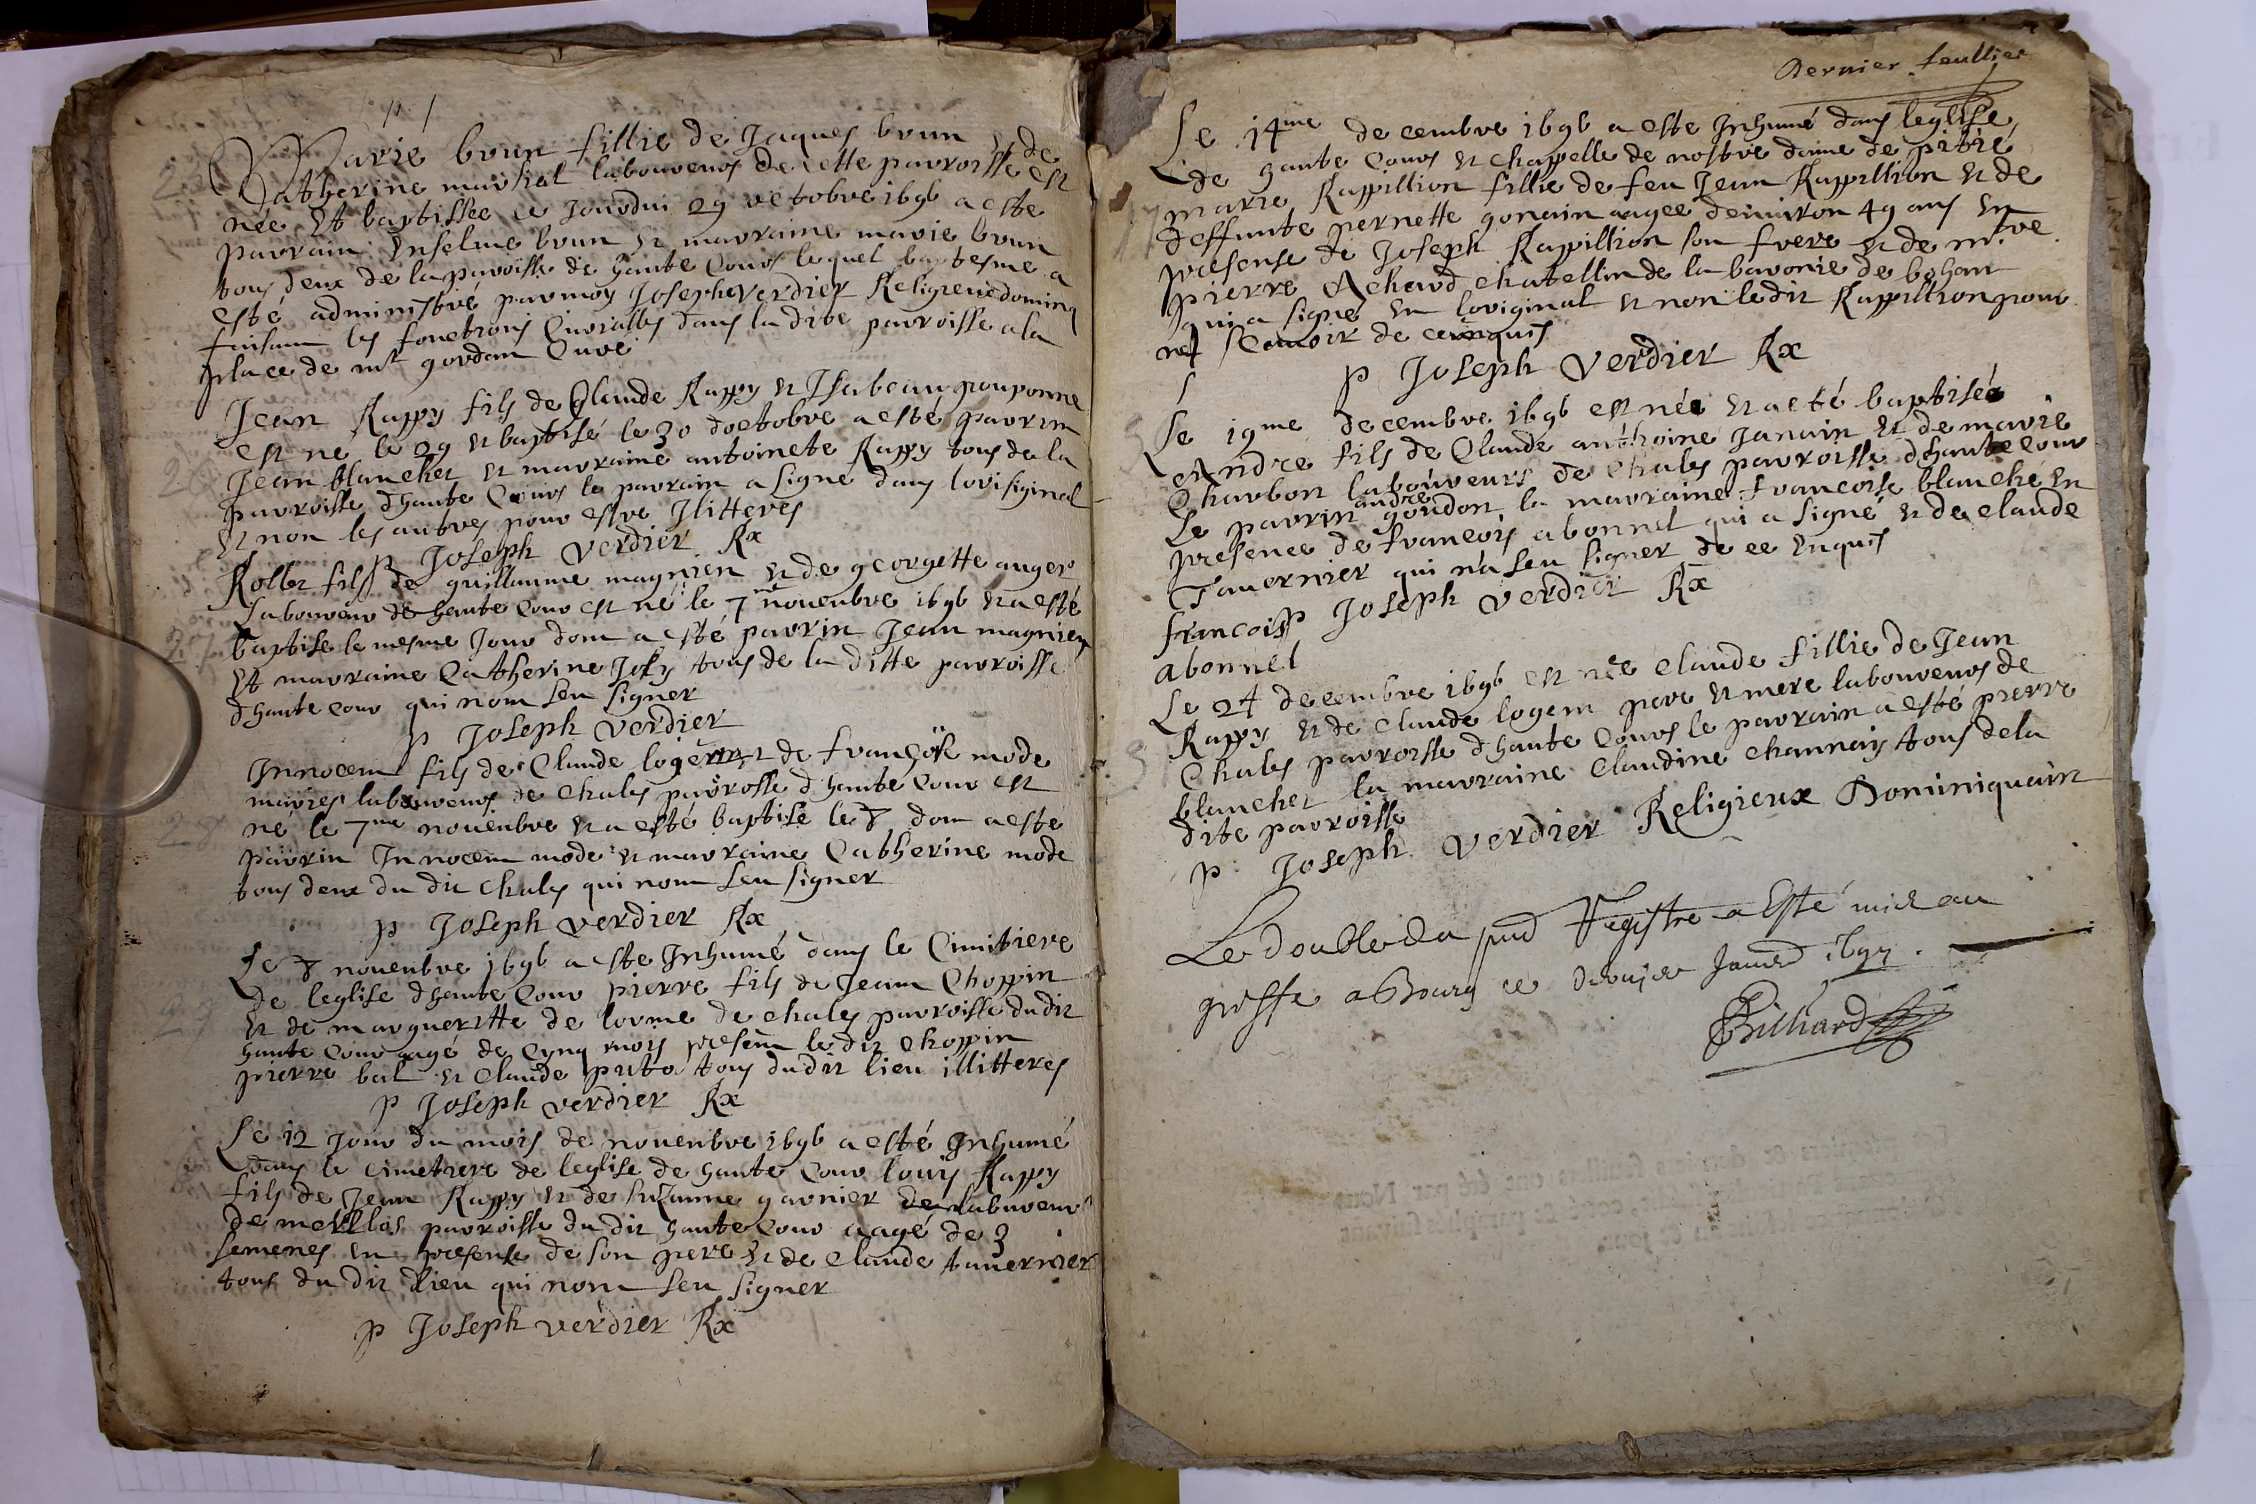 Marie brun fillie de Jaques brun et de
Catherine marsial laboureurs de cette parroisse est
née et baptissée ce Jourdui 29 octobre 1696 a este
parrain Enselme brun et marraine marie brun
tous deux de la paroisse de haute Cours lequel baptesme a
esté administré par moy Joseph verdier Religieu dominiq
faisant les fonctions Curialles dans la dite parroisse a la
place de mr gordan Curé
Jean Rappy fils de Claude Rappy et Isabeau pouponne
est ne le 29 et baptisé le 30 doctobre a esté parrin
Jean blanchet et marraine antoinete Rappy tous de la
parroisse dhaute Cours le parrain a signé dans lorisiginal
et non les autres pour estre Ilitteres
p Joseph verdier Rx
Rollet fils de guillaume magnien et de georgette anger
laboureur de haute Cour est né le 7me nouenbre 1696 et a esté
baptisé le mesme Jour dont a esté parrin Jean magnien
et marraine Catherine Joly tous de la ditte parroisse
dhaute Cour qui nont seu signer
p Joseph verdier
Innocent fils de Claude logerot et de françoise mode
mariés laboureurs de Chales parroisse dhaute Cour est
né le 7me nouenbre et a esté baptisé le 8 dont a este
parrin Innocent mode et marraine Catherine mode
tous deux du dit Chales qui nont seu signer
p Joseph verdier Rx
Le 8 nouenbre 1696 a este Inhumé dans le Cimitiere
de leglise dhaute Cour pierre fils de Jean Choppin
et de marguerite de lorme de chales parroisse dudit
haute Cour aagé de Cynq mois presént le dit Choppin
pierre bal et Claude tous dudit lieu illitteres
p Joseph verdier Rx
Le 12 Jour du mois de nouenbre 1696 a esté Inhumé
dans le cimetiere de leglise de haute Cour louis Rappy
fils de Jean Rappy et de suzanne garnier laboureur
de parroisse du dit haute Cour aagé de 3
semenes en presense de son pere et de Claude tauernier
tous du dit lieu qui nont seu signer
p Joseph verdier Rx
Dernier feuillier
Le 14me decembre 1696 a este Inhumé dans leglise
de haute Cours et chappelle de nostre dame de pitié
marie Rappillion fillie de feu Jean Rappillion et de
deffunte pernette gonain aagée denuiron 49 ans en
presense de Joseph Rappillion son frere et de mtre
pierre Achard chatellin de la baronie de bohan
qui a signé en loriginal et non ledit Rappillion pour
ne scauoir de ce enquis
p Joseph verdier Rx
Le 19me decembre 1696 est née et a eté baptisée
Andre fils de Claude anthoine Janain et de marie
Charbon laboureurs de Chales parroisse dhaute Cour
Le parrin andré gourdon la marraine francoise blanche en
presence de francois abonnel qui a signé et de claude
Tauernier qui na seu signer de ce enquis
francois p Joseph verdier Rx
abonnel
Le 24 decembre 1696 est née Claude fillie de Jean
Rappy et de claude logerot pere et mere laboureurs de
Chales parroisse dhaute Cours le parrain a esté pierre
blanchet la marraine Claudine Channay tous de la
dite parroisse
p Joseph verdier Religieux Dominiquain
Le double du pnt Registre a Esté mis au
greffe a Bourg ce janvr 1697